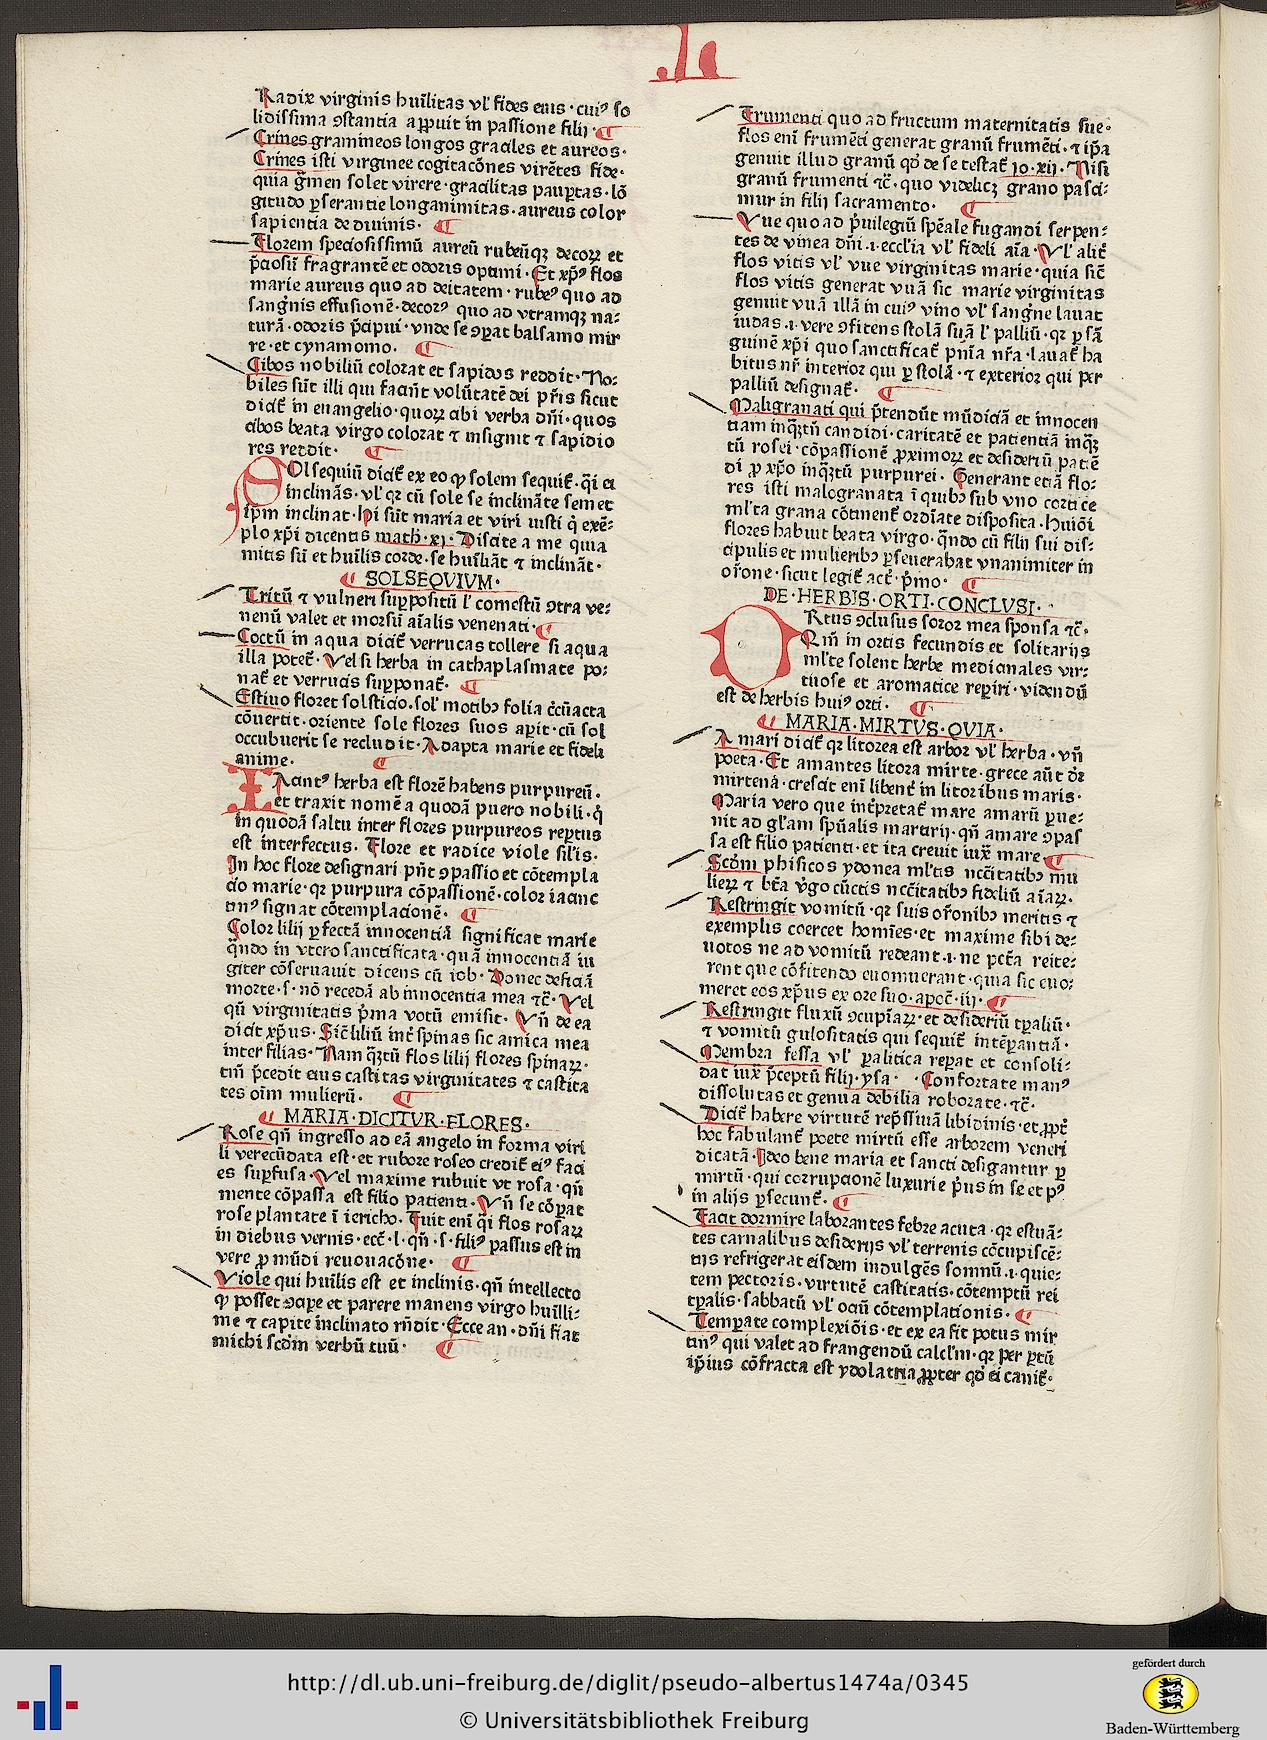 Radix virginis hūilitas vl' fides eius · cuiꝰ so
lidissima ꝯstantia apꝑuit in passione filij ·
Crines gramineos longos graciles et aureos ·
Crines isti virginee cogitacōnes virētes fide ·
quia g̃men solet virere · gracilitas paup̱tas · lō
gitudo p̱serantie longanimitas · aureus color
sapientia de diuinis ·
Florem speciosissimū aureū rubeūqꝫ decoꝝ et
p̄ciosū fragrantē et odoris optimi · Et xp̄ꝰ flos
marie aureus quo ad deitatem · rubeꝰ quo ad
sang̃nis effusionē · decorꝰ quo ad vtramqꝫ na⸗
turā · odoris p̄cipui · vnde se ꝯp̱at balsamo mir
re · et cynamomo ·
Cibos nobiliū colorat et sapidos reddit · No⸗
biles sūt illi qui faciūt volūtatē dei pr̄is sicut
dicit̄ in euangelio · quoꝝ cibi verba dn̄i · quos
cibos beata virgo colorat ⁊ insignit ⁊ sapidio
res reddit ·
SOlsequiū dicit̄ ex eo ꝙ solem sequit̄ · q̄i ei
inclinās · vl' qꝛ cū sole se inclināte semet
ip̄m inclinat · Hi sūt maria et viri iusti q̇ exē⸗
plo xp̄i dicentis math̄ · xj · Discite a me quia
mitis sū et hūilis corde · se hūiliāt ⁊ inclināt ·
SOLSEQVIVM ·
Tritū ⁊ vulneri supp̱ositū l' comestū ꝯtra ve⸗
nenū valet et morsū aīalis venenati ·
Coctū in aqua dicit̄ verrucas tollere si aqua
illa potet̄ · Vel si herba in cathaplasmate po⸗
nat̄ et verrucis supp̱onat̄ ·
Estiuo floret solsticio · sol' motibꝫ folia c̄cūacta
cōuertit · oriente sole flores suos ap̱it · cū sol
occubuerit se recludit · Adapta marie et fideli
anime ·
IAcintꝰ herba est florē habens purpureū ·
et traxit nomē a quodā puero nobili · q̇
in quodā saltu inter flores purpureos rep̱tus
est interfectus · Flore et radice viole sil'is ·
In hoc flore designari pn̄t ꝯpassio et cōtempla
cio marie · qꝛ purpura cōpassionē · color iacinc
tinꝰ signat cōtemplacionē ·
Color lilij p̱fectā innocentiā significat marie
q̄ndo in vtero sanctificata · quā innocentiā iu
giter cōseruauit dicens cū iob · Donec deficiā
morte · s · nō recedā ab innocentia mea ⁊c̄ · Vel
qn̄ virginitatis p̄ma votū emisit · Vn̄ de ea
dicit xp̄us · Sic̄ liliū int̄ spinas sic amica mea
inter filias · Nam q̄ꝫtū flos lilij flores spinaꝝ ·
tm̄ p̄cedit eius castitas virginitates ⁊ castita
tes oīm mulierū ·
MARIA · DICITVR · FLORES ·
Rose qn̄ ingresso ad eā angelo in forma viri
li verecūdata est · et rubore roseo credit̄ eiꝰ faci
es sup̱fusa · Vel maxime rubuit vt rosa · qn̄
mente cōpassa est filio patienti · Vn̄ se cōp̱at
rose plantate ī iericho · Fuit eni q̄i flos rosaꝝ
in diebus vernis · ecc̄ · l · qn̄ · s · filiꝰ passus est in
vere ꝓ mūdi renouacōne ·
Viole qui hūilis est et inclinis · qn̄ intellecto
ꝙ posset ꝯcip̱e et parere manens virgo hūilli⸗
me ⁊ capite inclinato rn̄dit · Ecce an · dn̄i fiat
michi scd̄m verbū tuū ·
Frumenti quo ad fructum maternitatis sue ·
flos eni frumēti generat granū frumēti · ⁊ ip̄a
genuit illud granū qd̄ de se testat̄ jo · xij · Nisi
granū frumenti ⁊c̄ · quo videlicꝫ grano pasci⸗
mur in filij sacramento ·
Vue quo ad p̄uilegiū sp̄eāle fugandi serpen⸗
tes de vinea dn̄i · i · eccl'ia vl' fideli aīa · Vl' alit̄
flos vitis vl' vue virginitas marie · quia sic̄
flos vitis generat vuā sic marie virginitas
genuit vuā illā in cuiꝰ vino vl' sang̃ne lauat
iudas · i · vere ꝯfitens stolā suā l' palliū · qꝛ p̱ sā
guinē xp̄i quo sanctificat̄ pn̄ia nr̄a · lauat̄ ha
bitus nr̄ interior qui p̱ stolā · ⁊ exterior qui per
palliū designat̄ ·
Maligranati qui p̄tendūt mūdiciā et innocen
tiam inq̄ꝫtū candidi · caritatē et patientiā inq̄ꝫ
tū rosei · cōpassionē ꝓximoꝝ et desideriū patiē
di ꝓ xp̄o inq̄ꝫtū purpurei · Generant etiā flo⸗
res isti malogranata ī quibꝫ sub vno cortice
ml'ta grana cōtinent̄ ordīate disposita · Huiōi
flores habuit beata virgo · q̄ndo cū filij sui dis⸗
cipulis et mulieribꝫ p̱seuerabat vnanimiter in
or̄one · sicut legit̄ act̄ · p̄mo ·
DE · HERBIS · ORTI · CONCLVSI ·
ORtus ꝯclusus soror mea sponsa ⁊c̄ ·
Qm̄ in ortis fecundis et solitarijs
ml'te solent herbe medicinales vir⸗
tuose et aromatice rep̱iri · videndū
est de herbis huiꝰ orti ·
MARIA · MIRTVS · QVIA ·
A mari dicit̄ qꝛ litorea est arbor vl' herba · vn̄
poeta · Et amantes litora mirte · grece aūt dr̄
mirtena · crescit eni libent̄ in litoribus maris ·
Maria vero que int̄pretat̄ mare amarū p̱ue⸗
nit ad gl'am sp̄ualis martirij · qn̄ amare ꝯpas
sa est filio patienti · et ita creuit iux̄ mare
Scd̄m phisicos ydonea ml'tis ncc̄itatibꝫ mu
lieꝝ ⁊ bt̄a v̄go cūctis ncc̄itatibꝫ fideliū aīaꝝ ·
Restringit vomitū · qꝛ suis or̄onibꝫ meritis ⁊
exemplis coercet homīes · et maxime sibi de⸗
uotos ne ad vomitū redeant · i · ne pct̄a reite⸗
rent que cōfitendo euomuerant · quia sic euo⸗
meret eos xp̄us ex ore suo · apoc̄ · iij ·
Restringit fluxū ꝯcupīaꝝ · et desideriū tp̱aliū ·
⁊ vomitū gulositatis qui sequit̄ intēp̱antiā ·
Membra fessa vl' p̱alitica rep̱at et consoli⸗
dat iux̄ p̄ceptū filij · ysa · Confortate manꝰ
dissolutas et genua debilia roborate · ⁊c̄ ·
Dicit̄ habere virtutē rep̄ssiuā libidinis · et ꝓp̱t̄
hoc fabulant̄ poete mirtū esse arborem veneri
dicatā · Ideo bene maria et sancti desigantur p̱
mirtū · qui corrupcionē luxurie p̄us in se et pꝰ
in alijs p̱secunt̄ ·
Facit dormire laborantes febre acuta · qꝛ estuā⸗
tes carnalibus desiderijs vl' terrenis cōcupiscē⸗
tijs refrigerat eisdem indulgēs somnū · i · quie⸗
tem pectoris · virtutē castitatis · cōtemptū rei
tp̱alis · sabbatū vl' ociū cōtemplationis ·
Temp̱ate complexiōis · et ex ea fit potus mir
tinꝰ qui valet ad frangendū calcl'm · qꝛ per p̱tū
ip̄ius cōfracta est ydolatria ꝓp̱ter qd̄ ei canit̄ ·
http://dl.ub.uni-freiburg.de/diglit/pseudo-albertus1474a/0345
© Universitätsbibliothek Freiburg
gefördert durch
Baden-Württemberg